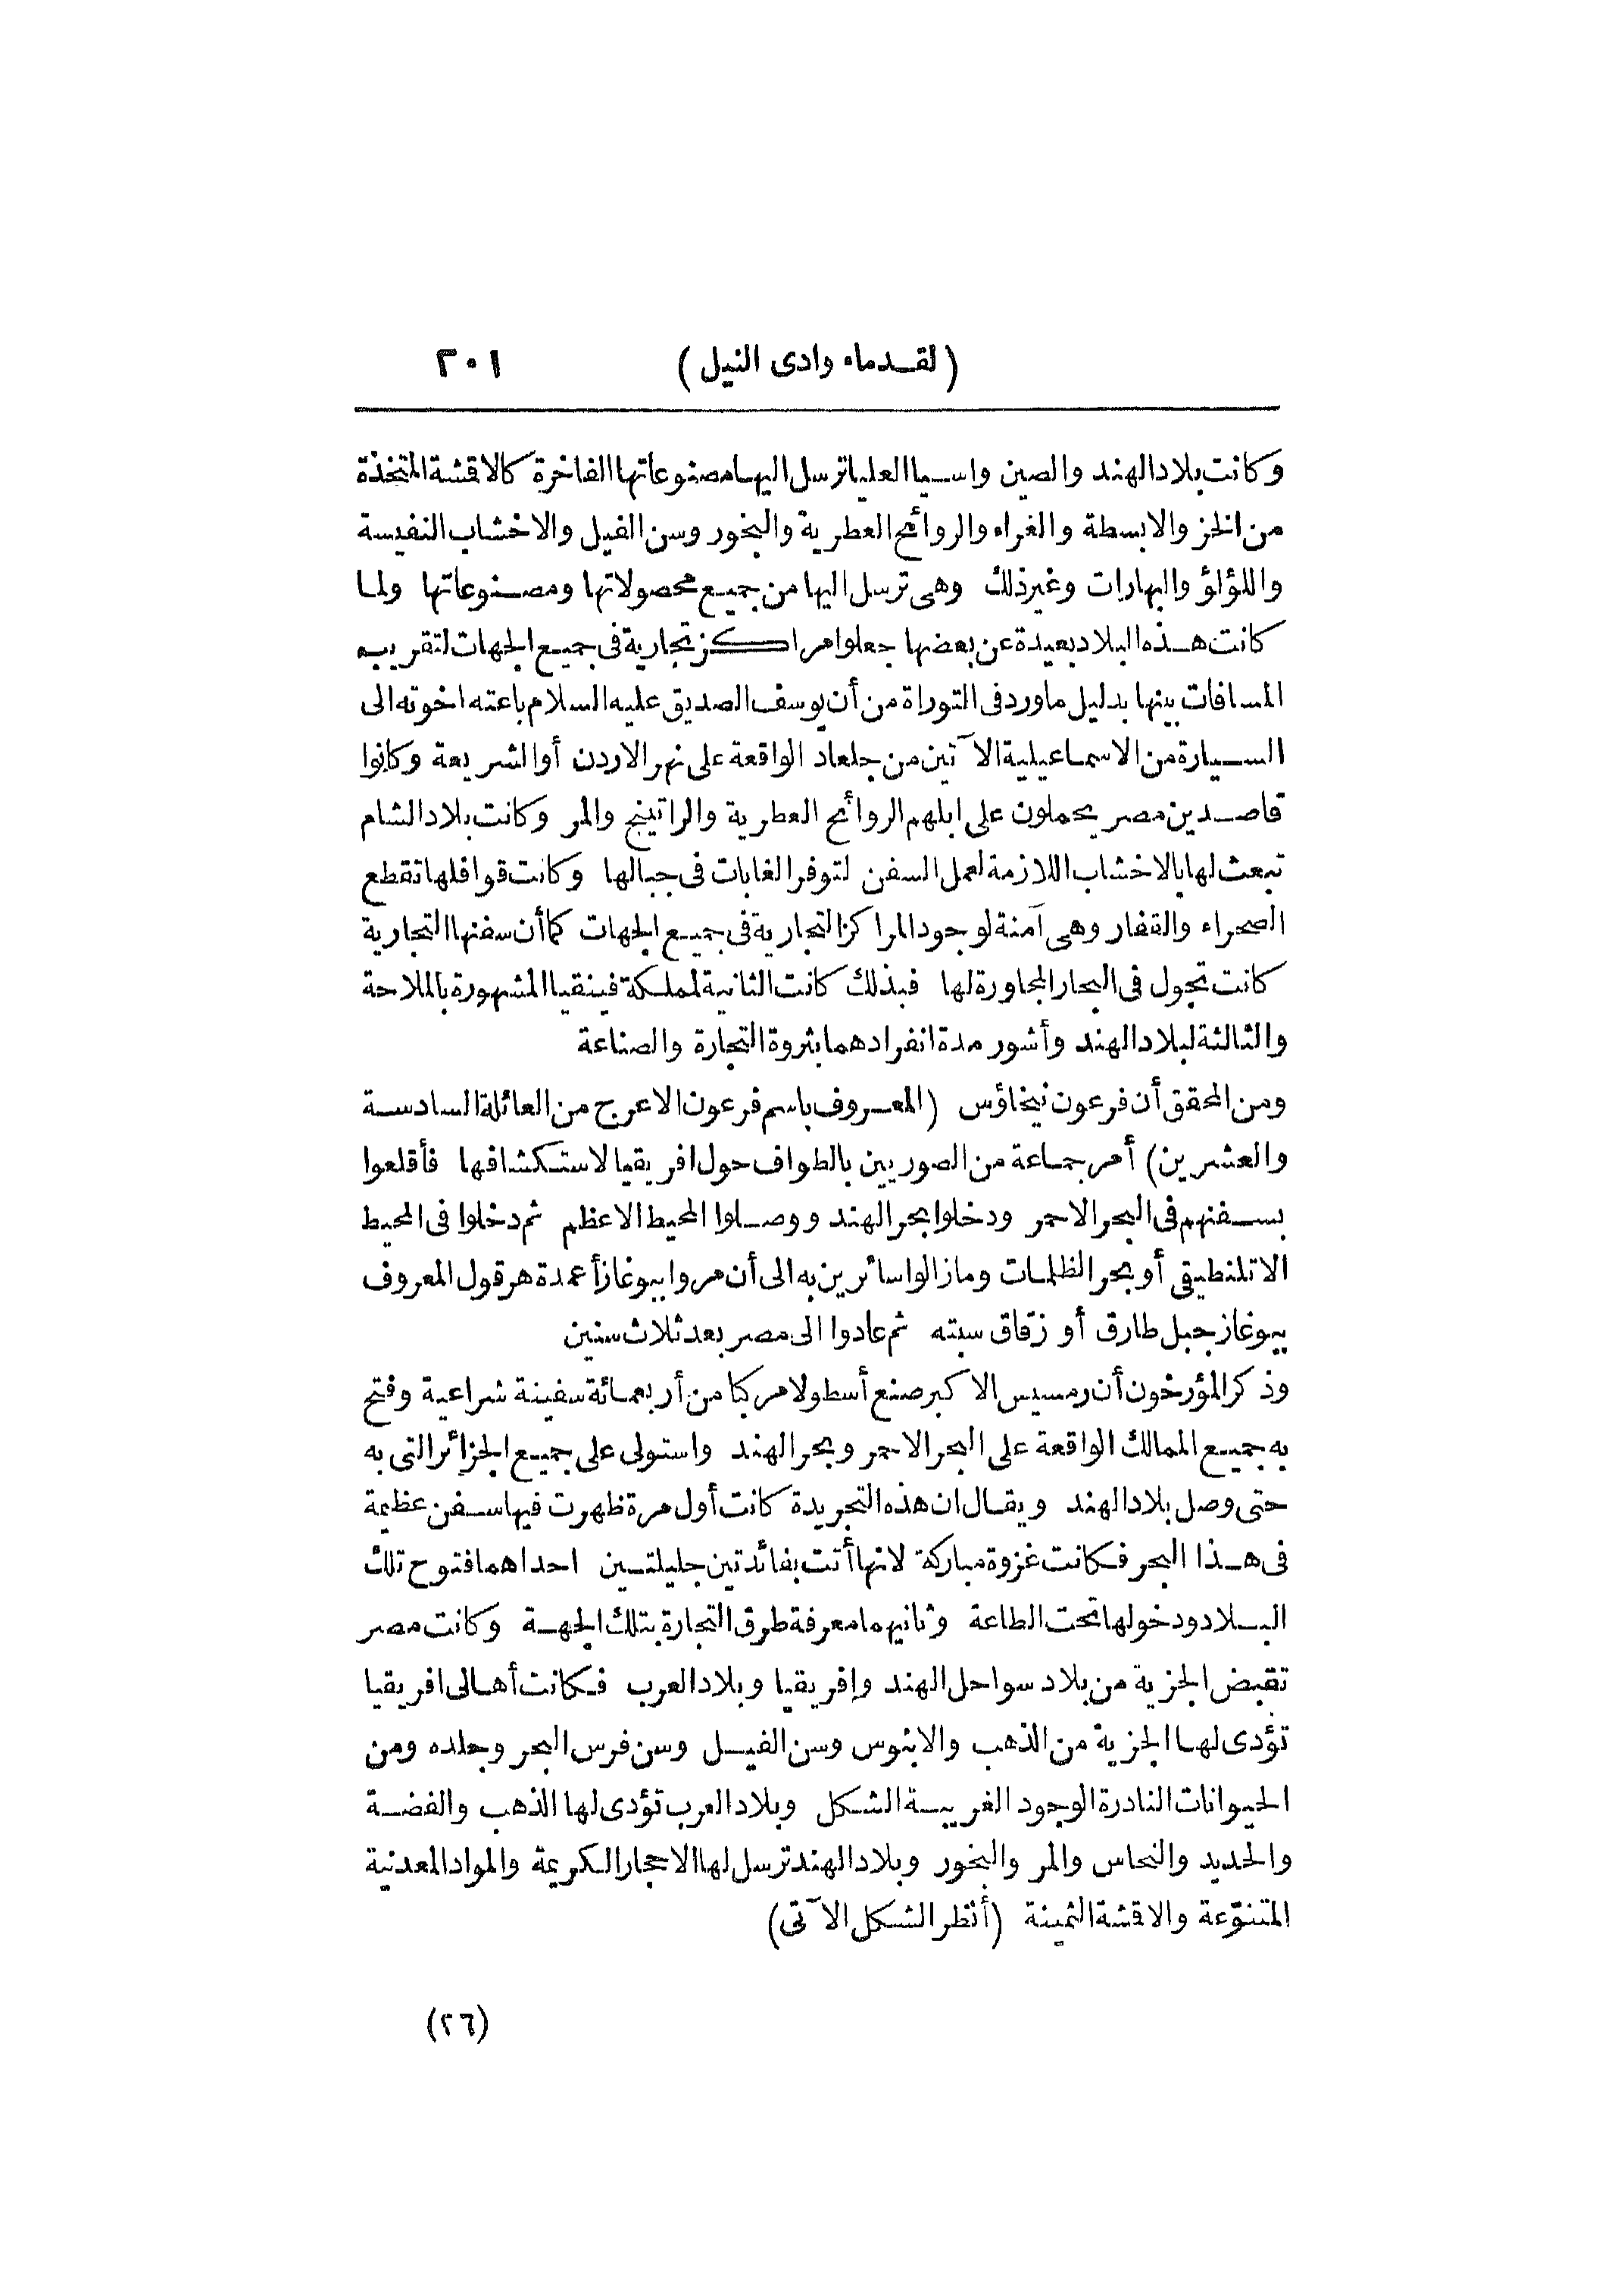 (لقدماء وادى النيل) ٢٠١
وكانت بلاد الهند والصين واسيا العليا ترسل اليها مصنوعاتها الفاخرة كالاقشة المتخذة
من الخز والابسطة والغراء والروائح العطرية والبخور وسن الفيل والاخشاب النفيسة
واللؤلؤ والبهارات وغير ذلك وهى ترسل اليها من جميع محصولاتها ومصنوعاتها ولما
كانت هذه البلاد بعيدة عن بعضها جعلوا مراكز تجارية فى جميع الجهات لتقريب
المسافات بينها بدليل ما ورد فى التوراة من أن يوسف الصديق عليه السلام باعته اخوته الى
السيارة من الاسماعيلية الآتين من جلعاد الواقعة على نهر الاردن أو الشريعة وكانوا
قاصدين مصر يحملون على ابلهم الروائح العطرية والراتينج والمر وكانت بلاد الشام
تبعث لها بالاخشاب اللازمة لعمل السفن لتوفر الغابات فى جبالها وكانت قوافلها تقطع
الصحراء والقفار وهى آمنة لوجود المراكز التجارية فى جميع الجهات كما أن سفنها التجارية
كانت تجول فى البحار المجاورة لها فبذلك كانت الثانية لمملكة فينقيا المشهورة بالملاحة
والثالثة لبلاد الهند وأشور مدة انفرادهما بثروة التجارة والصناعة
ومن المحقق أن فرعون نيخاؤس (المعروف باسم فرعون الاعرج من العائلة السادسة
والعشرين) أمر جماعة من الصوريين بالطواف حول افريقيا لاستكشافها فأقلعوا
بسفنهم فى البحر الاحمر ودخلوا بحر الهند ووصلوا المحيط الاعظم ثم دخلوا فى المحيط
الاتلنطيقى أو بحر الظلمات وما زالوا سائرين به الى أن مروا ببوغاز أعمدة هرقول المعروف
ببوغاز جبل طارق أو زقاق سبته ثم عادوا الى مصر بعد ثلاث سنين
وذكر المؤرخون أن رمسيس الاكبر صنع أسطولا مركبا من أربعمائة سفينة شراعية وفتح
به جميع الممالك الواقعة على البحر الاحمر وبحر الهند واستولى على جميع الجزائر التى به
حتى وصل بلاد الهند ويقال ان هذه التجريدة كانت أول مرة ظهرت فيها سفن عظيمة
فى هذا البحر فكانت غزوة مباركة لانها أتت بفائدتين جليلتين احداهما فتوح تلك
البلاد ودخولها تحت الطاعة وثانيهما معرفة طرق التجارة بتلك الجهة وكانت مصر
تقبض الجزية من بلاد سواحل الهند وإفريقيا وبلاد العرب فكانت أهالى افريقيا
تؤدى لها الجزية من الذهب والابنوس وسن الفيل وسن فرس البحر وجلده ومن
الحيوانات النادرة الوجود الغريبة الشكل وبلاد العرب تؤدى لها الذهب والفضة
والحديد والنحاس والمر والبخور وبلاد الهند ترسل لها الاحجار الكريمة والمواد المعدنية
المتنوّعة والاقشة الثمينة (أنظر الشكل الآتى)
(٢٦)